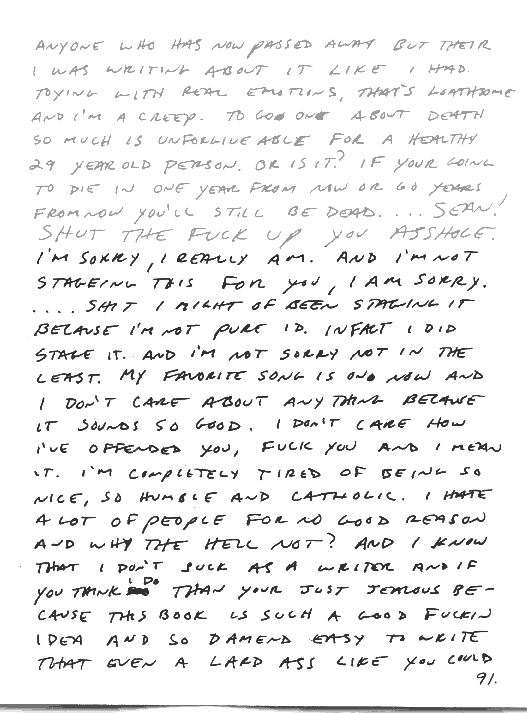 ANYONE WHO HAS NOW PASSED AWAY BUT THEIR
I WAS WRITING ABOUT IT LIKE I HAD.
TOYING WITH REAL EMOTIONS, THAT'S LOATHSOME
AND I'M A CREEP. TO GO ON ABOUT DEATH
SO MUCH IS UNFORGIVEABLE FOR A HEALTHY
29 YEAR OLD PERSON. OR IS IT? IF YOUR GOING
TO DIE IN ONE YEAR FROM NOW OR 60 YEARS
FROM NOW YOU'LL STILL BE DEAD.... SEAN!
SHUT THE FUCK UP YOU ASSHOLE.
I'M SORRY, I REALLY AM. AND I'M NOT
STAGEING THIS FOR YOU, I AM SORRY.
.... SHIT I MIGHT OF BEEN STAGING IT
BECAUSE I'M NOT PURE ID. INFACT I DID
STAGE IT. AND I'M NOT SORRY NOT IN THE
LEAST. MY FAVORITE SONG IS ON NOW AND
I DON'T CARE ABOUT ANYTHING BECAUSE
IT SOUNDS SO GOOD. I DON'T CARE HOW
I'VE OFFENDED YOU, FUCK YOU AND I MEAN
IT. I'M COMPLETELY TIRED OF BEING SO
NICE, SO HUMBLE AND CATHOLIC. I HATE
A LOT OF PEOPLE FOR NO GOOD REASON
AND WHY THE HELL NOT? AND I KNOW
THAT I DON'T SUCK AS A WRITER AND IF
YOU THINK I DO THAN YOUR JUST JEALOUS BE-
CAUSE THIS BOOK IS SUCH A GOOD FUCKIN
IDEA AND SO DAMEND EASY TO WRITE
THAT EVEN A LARD ASS LIKE YOU COULD
91.